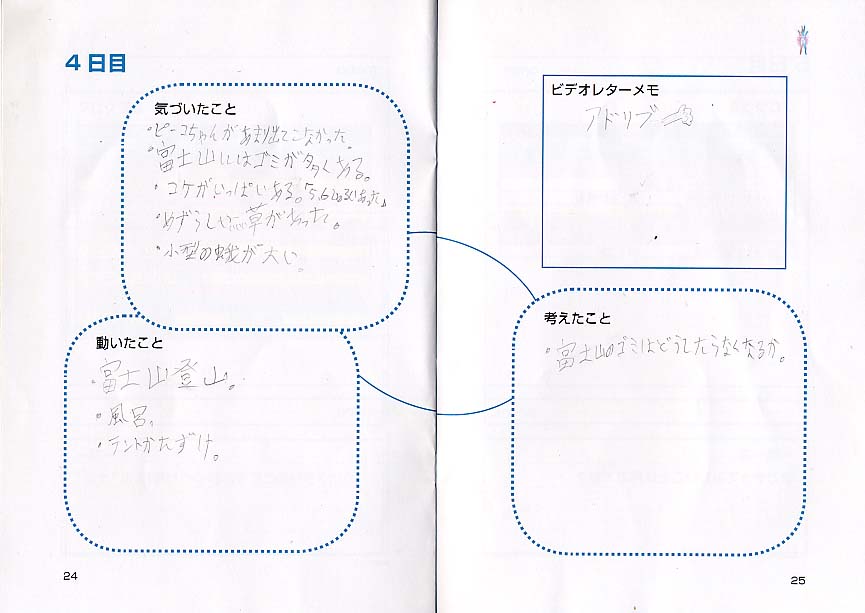 4日目
気づいたこと
・ピーコちゃんがあまり出てこなかった。
・富士山にはゴミが多くある。
・コケがいっぱいある。
・めずらしい草があった。
・小型の蛾が大い。
動いたこと
・富士山登山。
・風呂。
・テントかたずけ。
24
ビデオレターメモ
アドリブ
考えたこと
・富士山のゴミはどうしたらなくなるか。
25